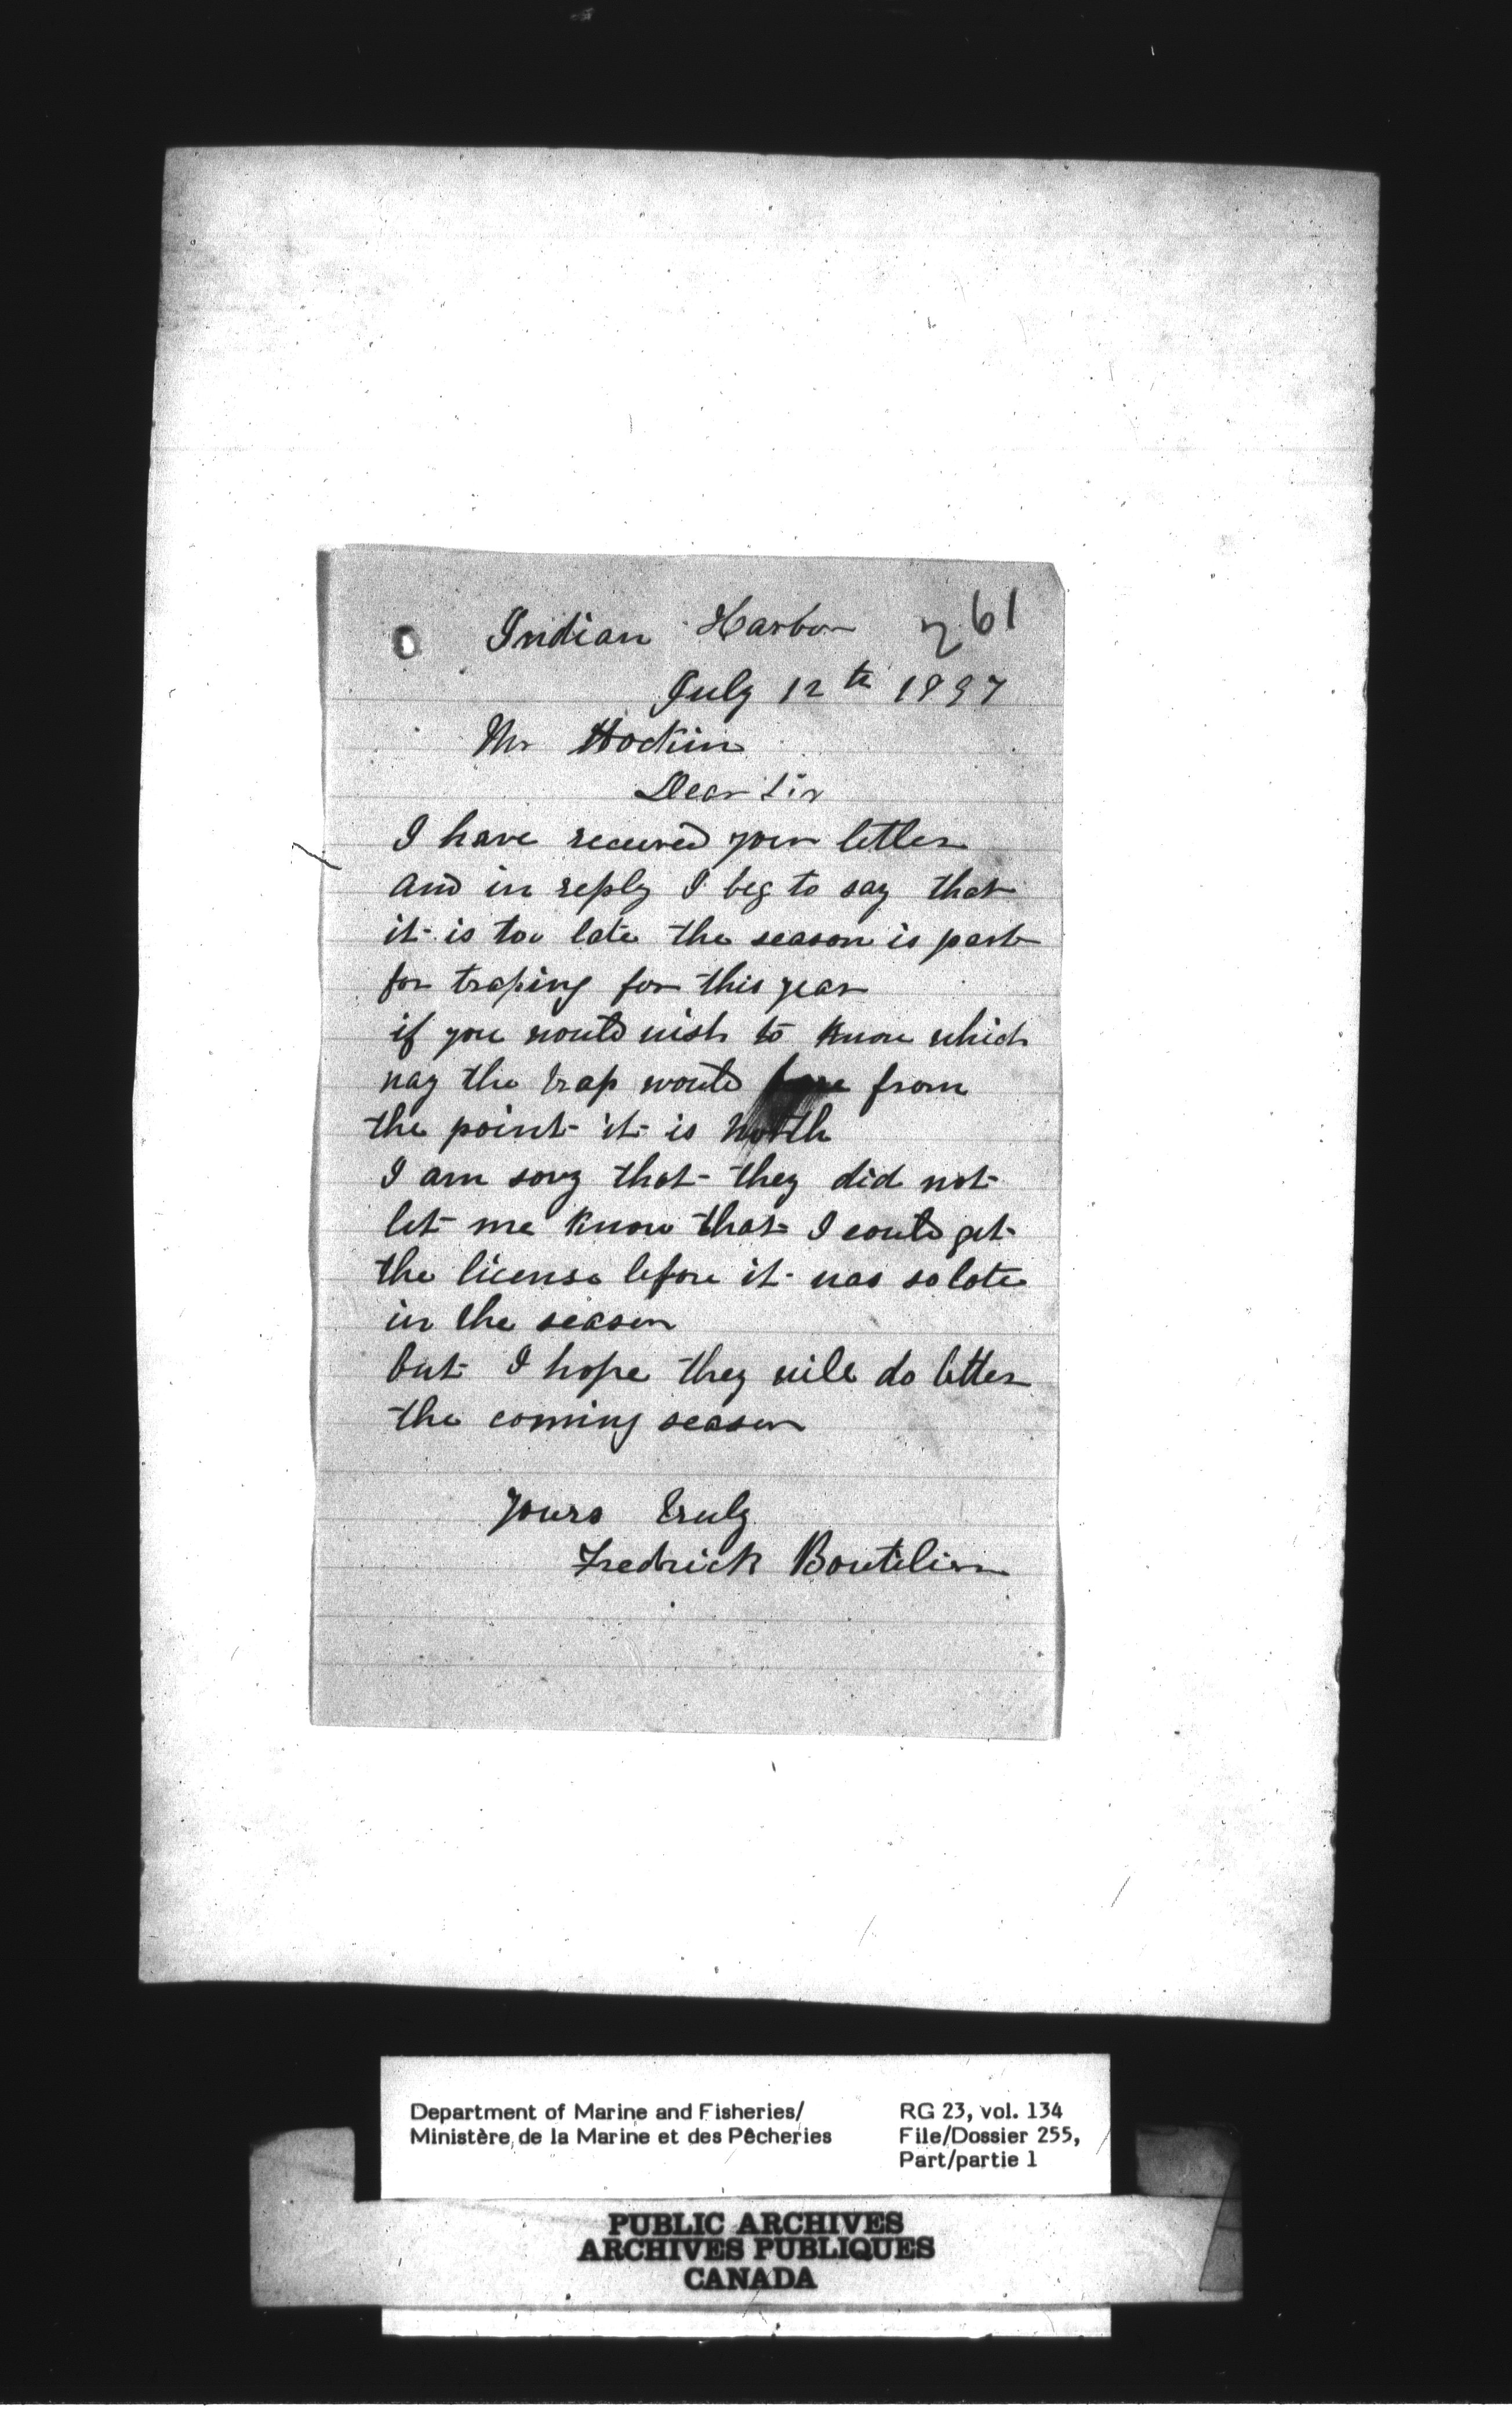 Indian Harbor 261
July 12th 1897
Mr Hockin
Dear Sir
I have received your letter
and in reply I beg to say that
it is too late the season is past
for traping for this year
if you would wish to know which
way the trap would from
the point it is North
I am sory that they did not
let me know that I could get
the license before it was so late
in the season
but I hope they will do better
the coming season
Yours truly
Fredrick Boutilier
Department of Marine and Fisheries/ RG 23, vol. 134
Ministère de la Marine et des Pêcheries File/Dossier 255,
Part/partie 1
PUBLIC ARCHIVES
ARCHIVES PUBLIQUES
CANADA